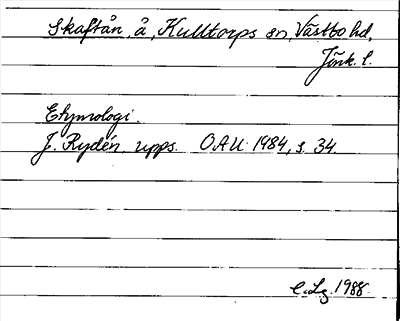 Skaftån, å, Kulltorps sn, Västbo hd,
Jönk. l.
Etymologi.
J. Rydén upps. OAU 1984, s. 34.
C. Lg. 1988.